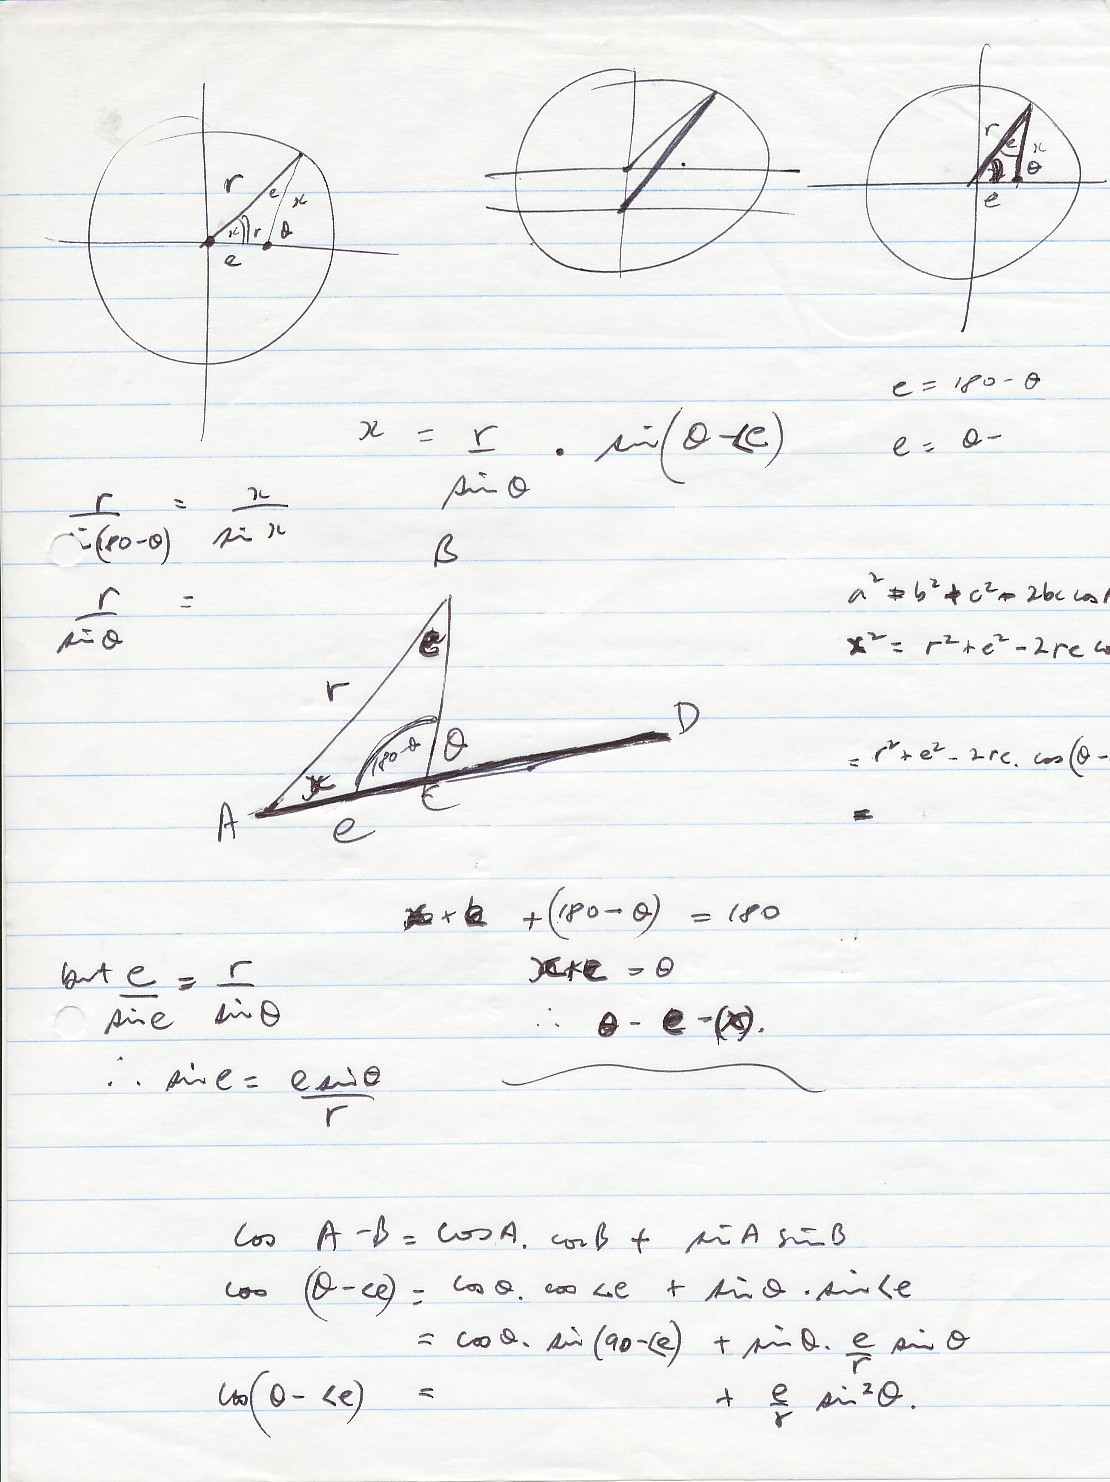 r
e
x
x r θ
e
r
e x
θ
e
e = 180 - θ
x = r/sin θ · sin(θ - <e)
e = θ -
r/sin(180-θ) = x/sin x
r/sin θ =
B
a² = b² + c² - 2bc cos
x² = r² + e² - 2re co
e
r
D
θ
180-θ
x
C
A
e
= r² + e² - 2re. cos(θ -
=
x + e + (180 - θ) = 180
x + e = θ
∴ θ - e - (x).
but e/sin e = r/sin θ
∴ sin e = e sin θ/r
cos A - B = cos A. cos B + sin A sin B
cos (θ - <e) = cos θ. cos <e + sin θ . sin <e
= cos θ. sin (90 - <e) + sin θ. e/r sin θ
cos(θ - <e) = + e/r sin² θ.